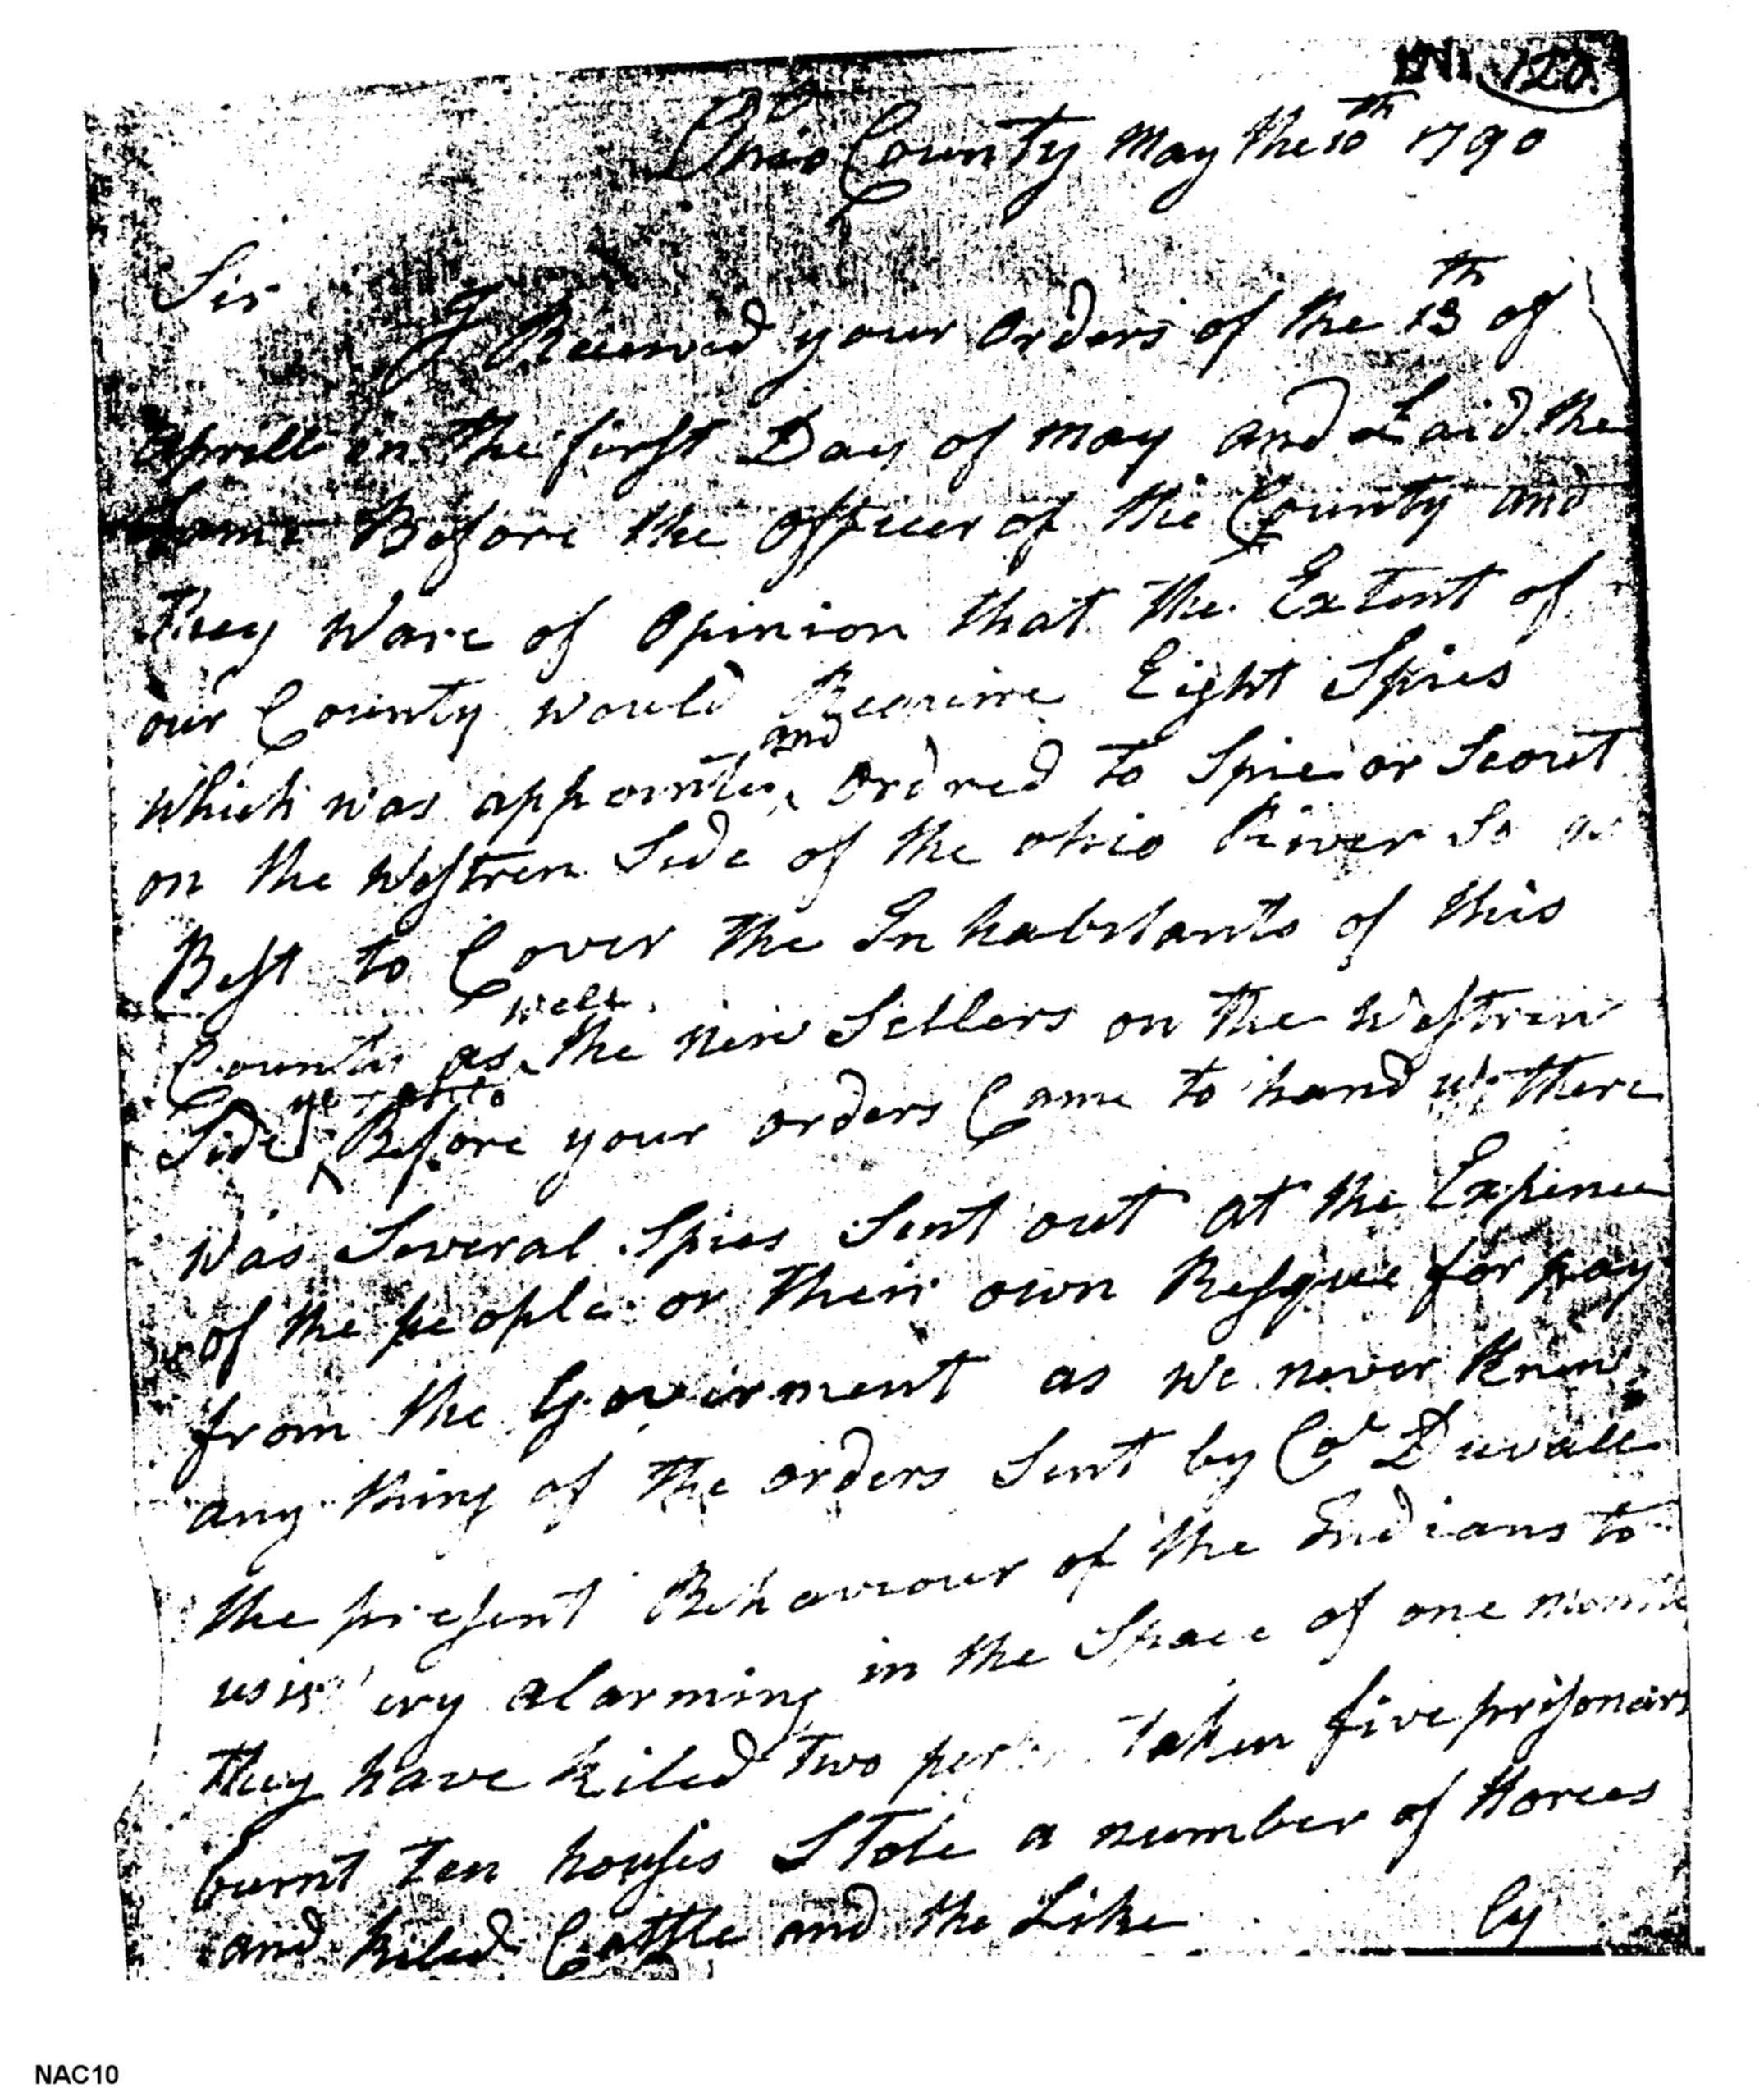 120
Ohio County May the 10th 1790
Sir
I Receved your orders of the 13th of
Aprill on the first Day of may and Laid the
Same Before the officer of the County and
They Ware of Opinion that the Extent of
our County would Require Eight Spies
and
which was appointed ordred to Spie or Scout
on the Westren Side of the ohio River So as
Best to Cover the Inhabitants of this
well
County as the new Setlers on the Westren
Side Before your orders Came to hand there
Was Several Spies Sent out at the Expence
of the people or their own Resque for pay
from the Goverment as we never Knew
any thing of the orders Sent by Col Duvall
the present Behaviour of the Indians to
us is very alarming in the Space of one month
They have kiled Two taken five prisonars
burnt Ten houses Stole a number of Horces
and kiled Cattle and the Like
by
NAC10